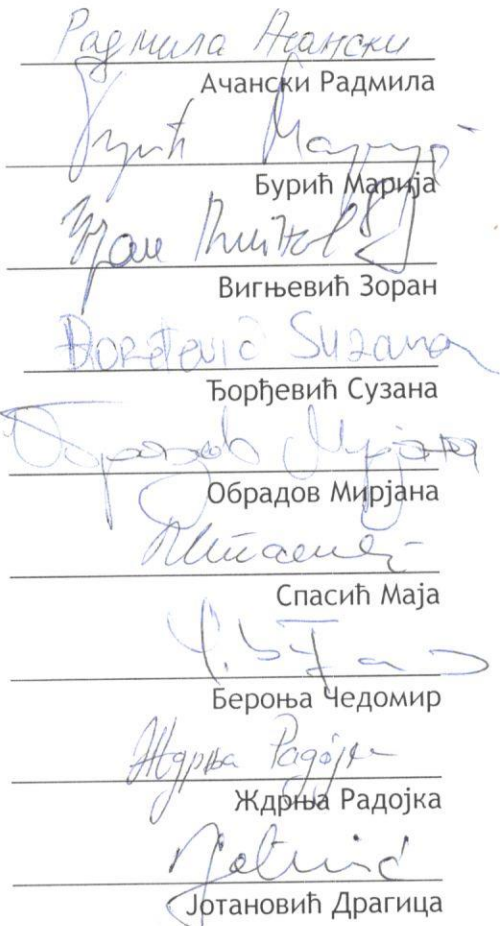 Радмила Ачански
Ачански Радмила
Бурић Марија
Бурић Марија
Зоран
Вигњевић Зоран
Đorđević Suzana
Ђорђевић Сузана
Обрадов Мирјана
Обрадов Мирјана
Спасић Маја
Бероња Чедомир
Ждрња Радојка
Ждрња Радојка
Јотановић Драгица